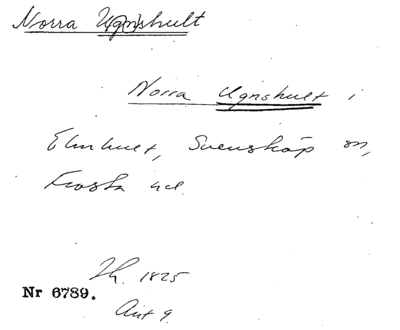 Norra Ugnshult
Norra Ugnshult i
Elmhult, Svensköp sn,
Frosta hd.
Th. 1825
Nr 6789.
Ant 9.